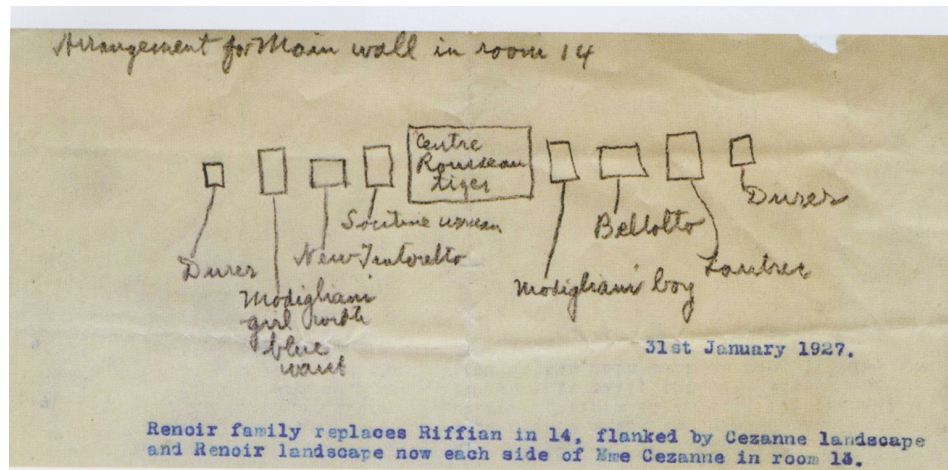 Arrangement for Main wall in room 14
Centre
Rousseau
tiger
Soutine woman
New Tintoretto
Durer
Modigliani
girl with
blue
waist
Modigliani boy
Bellotto
Lautrec
Durer
31st January 1927.
Renoir family replaces Riffian in 14, flanked by Cezanne landscape
and Renoir landscape now each side of Mme Cezanne in room 13.